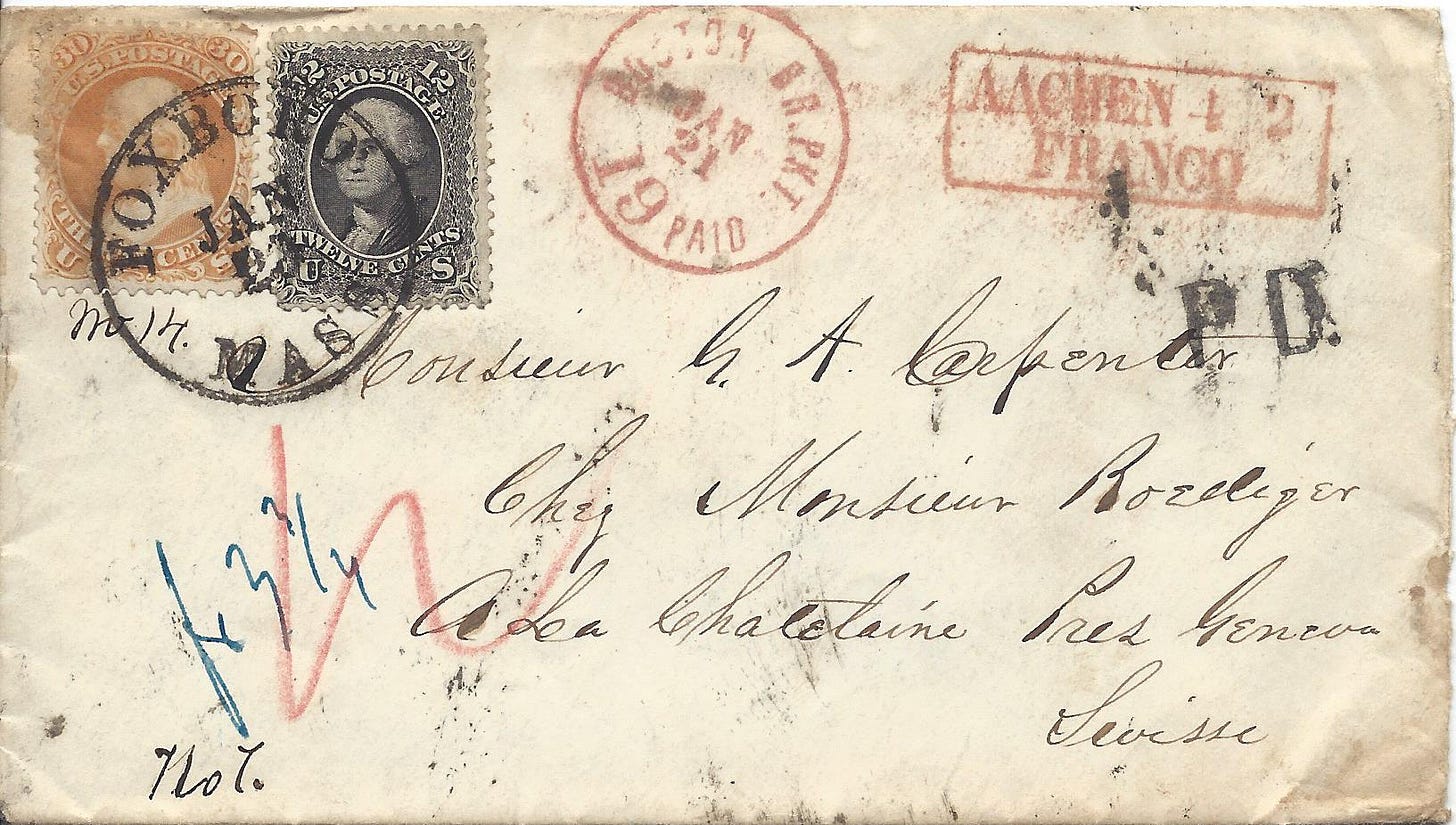 30 30
U.S. POSTAGE
U S
12 12
U.S. POSTAGE
TWELVE CENTS
U S
FOXBORO
JAN
MASS
BOSTON BR. PKT.
JAN
21
19
PAID
AACHEN 4 2
FRANCO
P D.
Monsieur G. A. Carpenter
Chez Monsieur Roediger
A La Chatelaine Pres Geneva
Suisse
No 7.